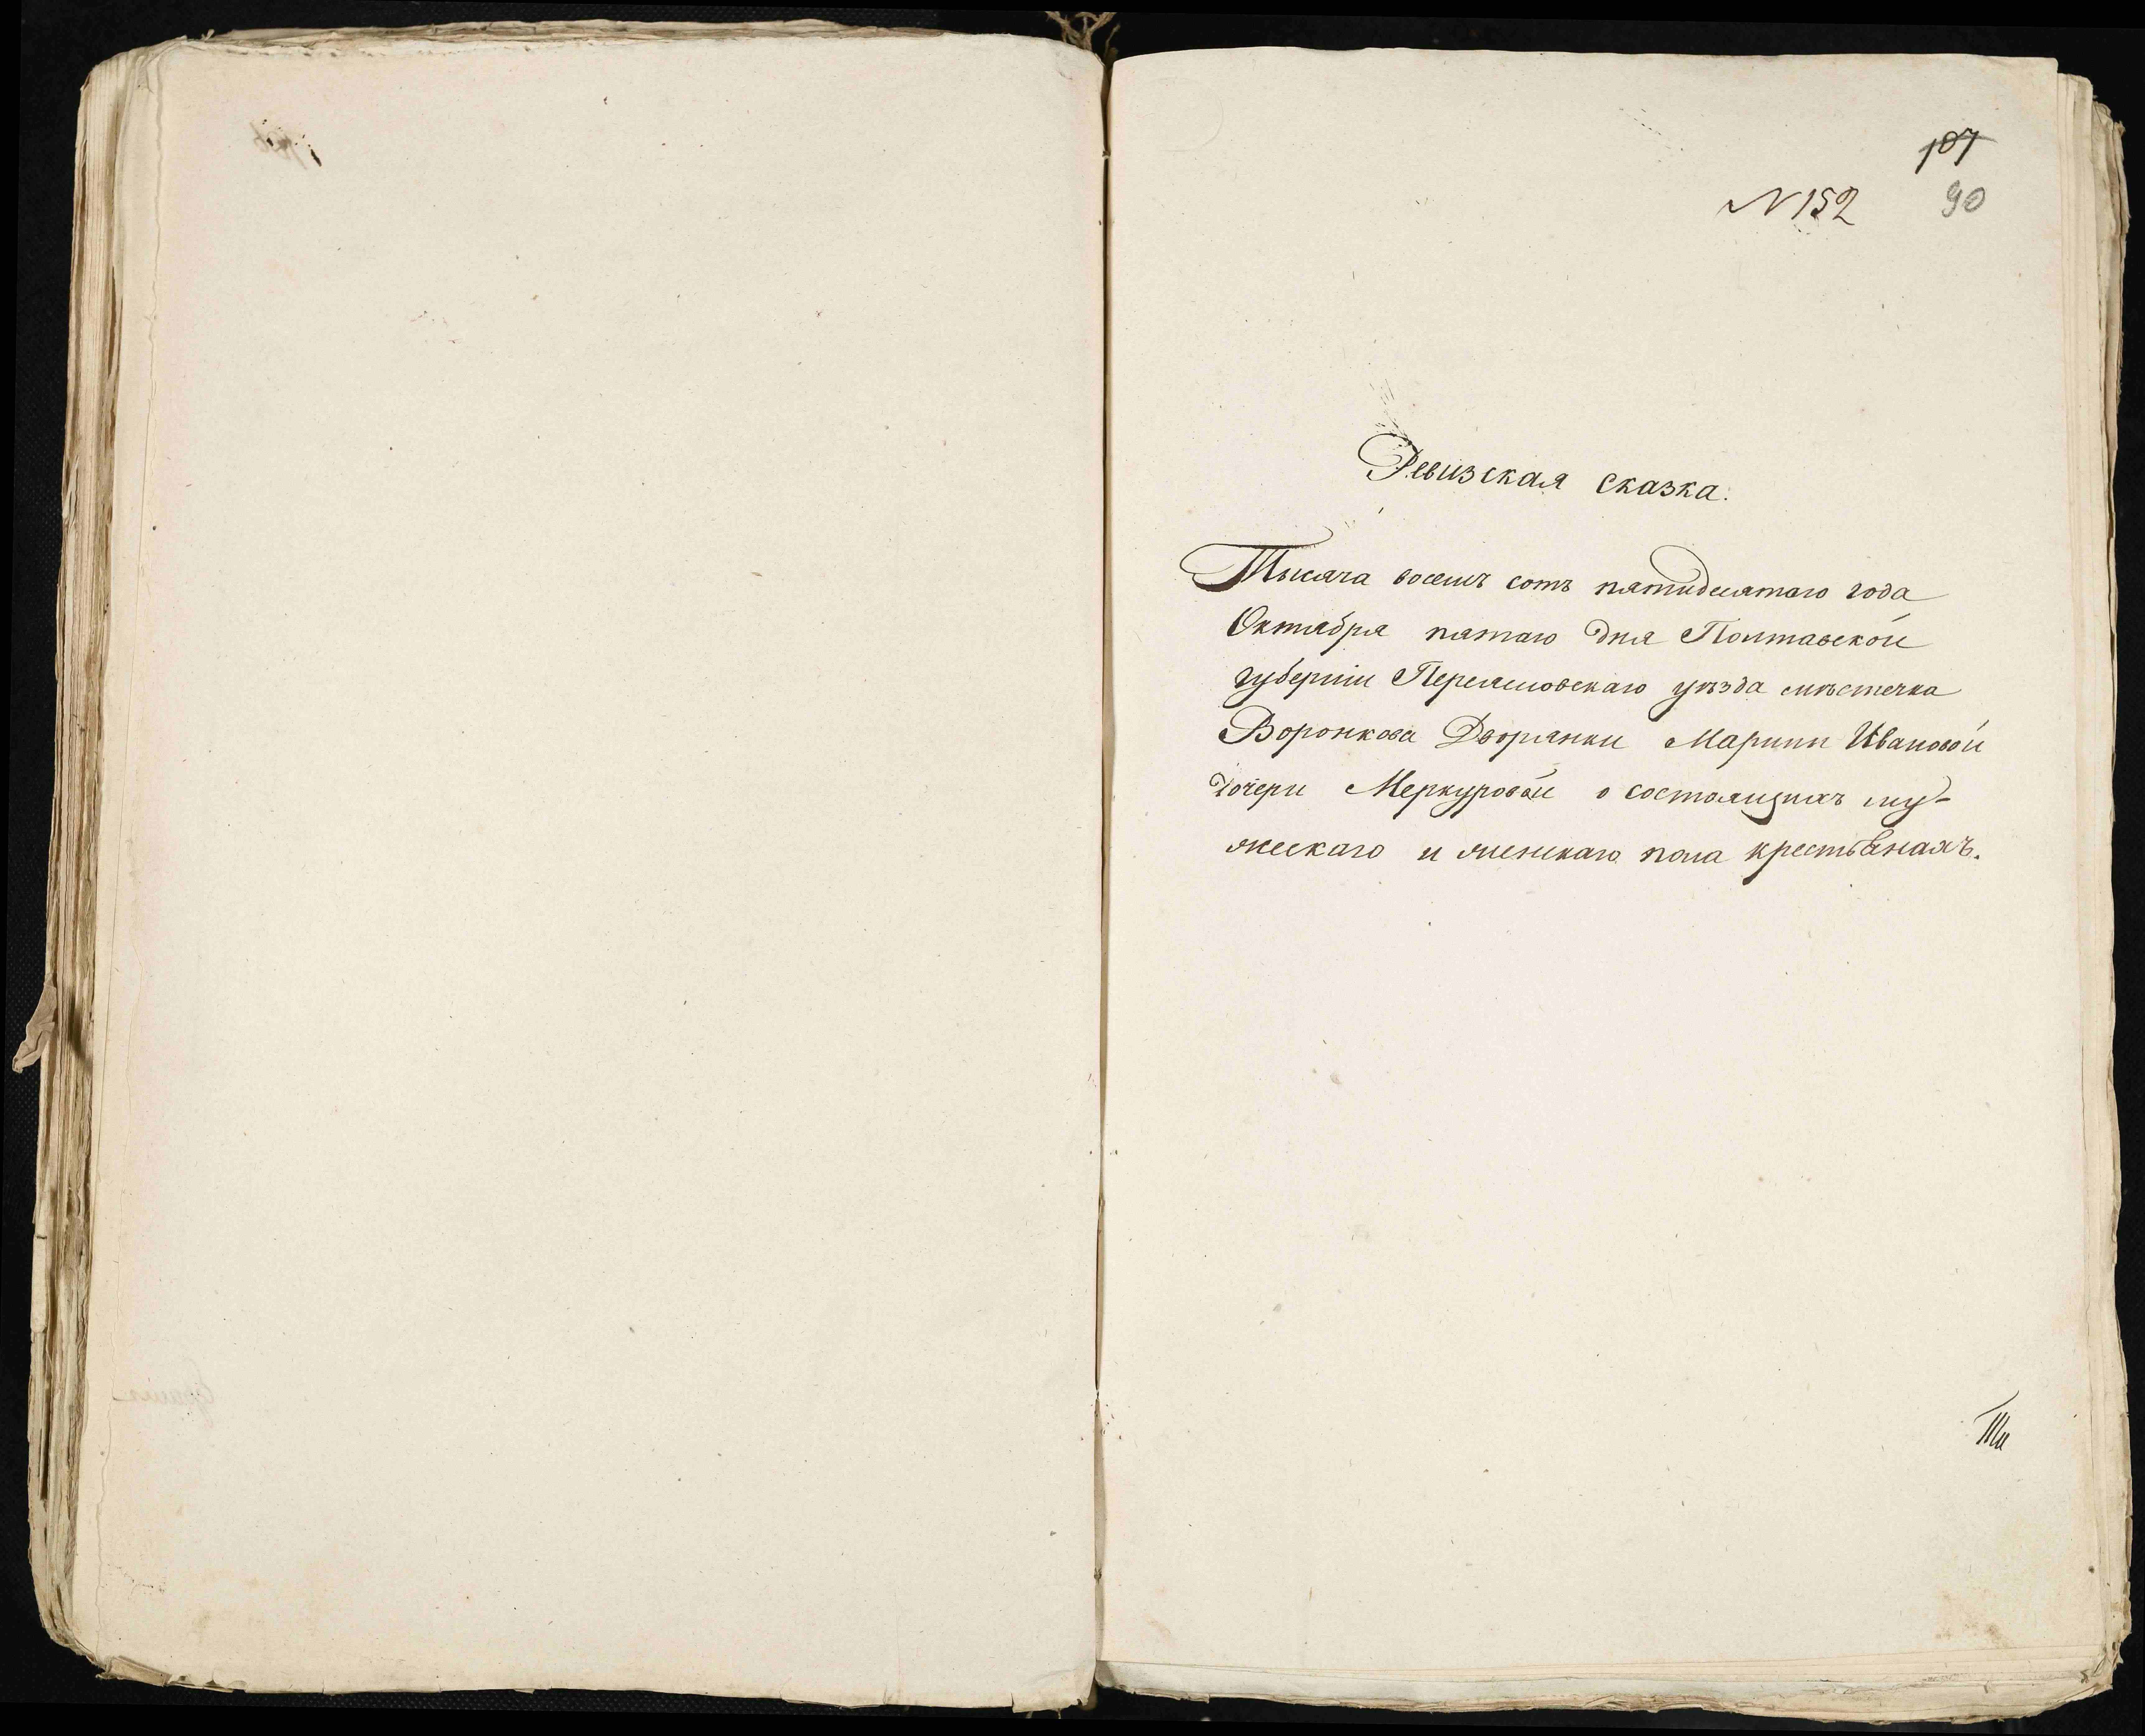 107
N 152 90
Ревизская сказка.
Тысяча восемъ сотъ пятидесятаго года
Октября пятаго дня Полтавской
губерніи Переяславскаго уѣзда мѣстечка
Воронкова Дворянки Марины Ивановой
дочери Меркуровой о состоящихъ му-
жескаго и женскаго пола крестьянахъ.